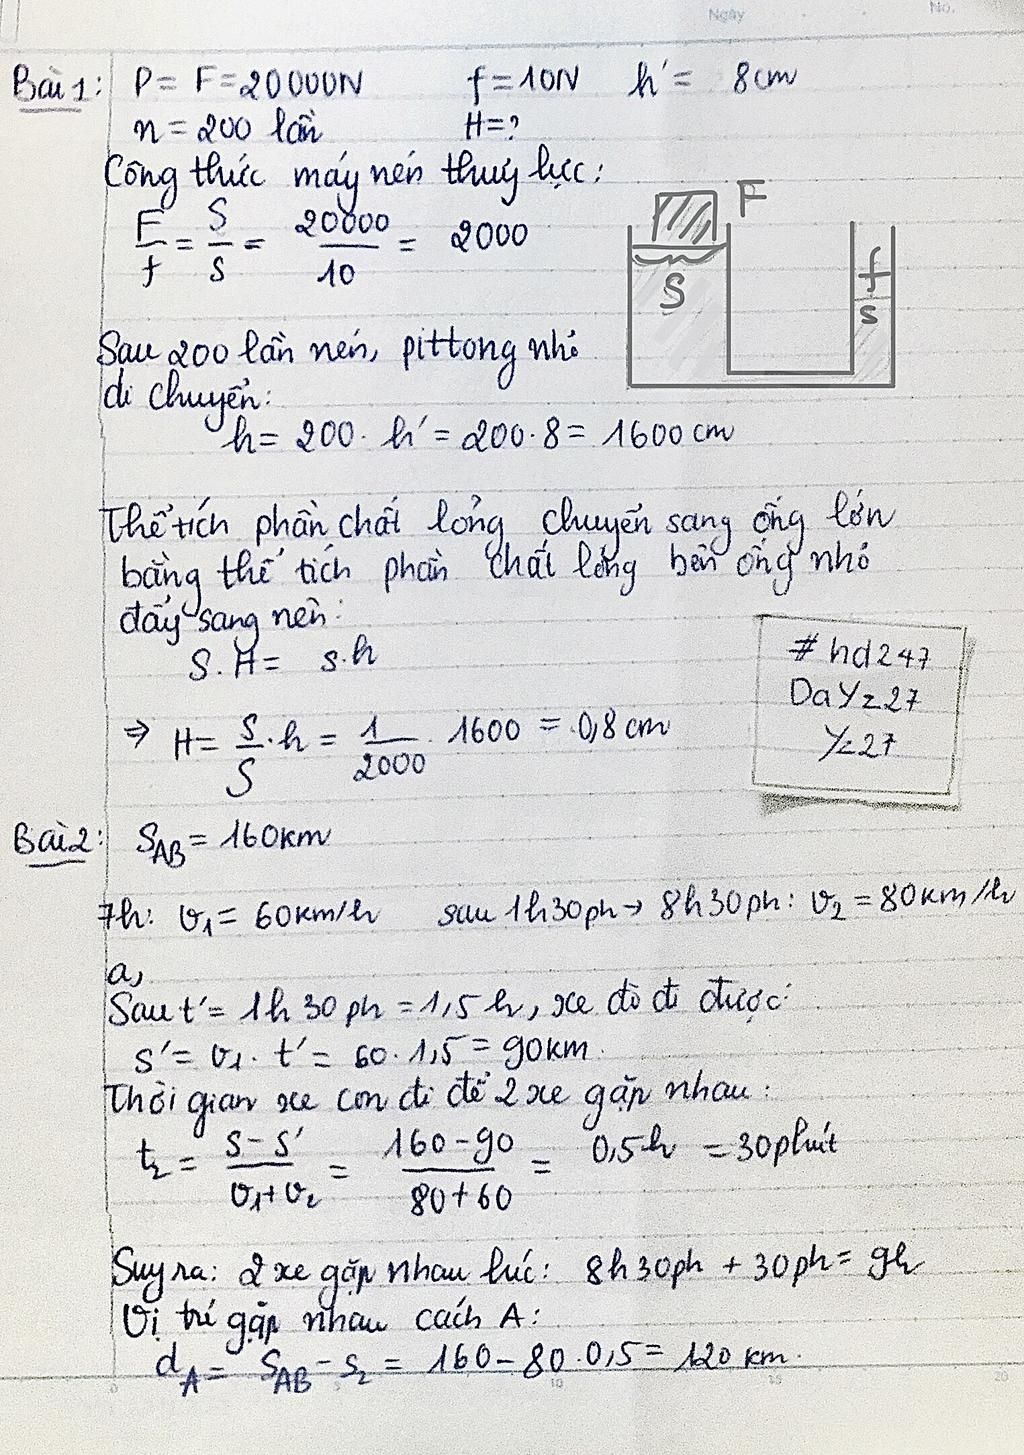 Ngày
No.
Bài 1: P = F = 20000N f = 10N h' = 8cm
n = 200 lần H = ?
Công thức máy nén thuỷ lực:
F/f = S/s = 20000/10 = 2000
F
S
f
s
Sau 200 lần nén, pittong nhỏ
di chuyển:
h = 200 . h' = 200.8 = 1600 cm
Thể tích phần chất lỏng chuyển sang ống lớn
bằng thể tích phần chất lỏng bên ống nhỏ
đẩy sang nên:
S.H = s.h
⇒ H = s/S . h = 1/2000 . 1600 = 0,8 cm
# hd247
DaYz27
Yz27
Bài 2: S_AB = 160km
7h: v₁ = 60km/h sau 1h30ph → 8h30ph: v₂ = 80km/h
a,
Sau t' = 1h 30 ph = 1,5 h, xe đò đi được:
s' = v₁ . t' = 60 . 1,5 = 90km.
Thời gian xe con đi để 2 xe gặp nhau:
t₂ = (s - s')/(v₁ + v₂) = (160 - 90)/(80 + 60) = 0,5h = 30phút
Suy ra: 2 xe gặp nhau lúc: 8h30ph + 30ph = 9h
Vị trí gặp nhau cách A:
d_A = S_AB - s₂ = 160 - 80.0,5 = 120 km.
0 5 10 15 20